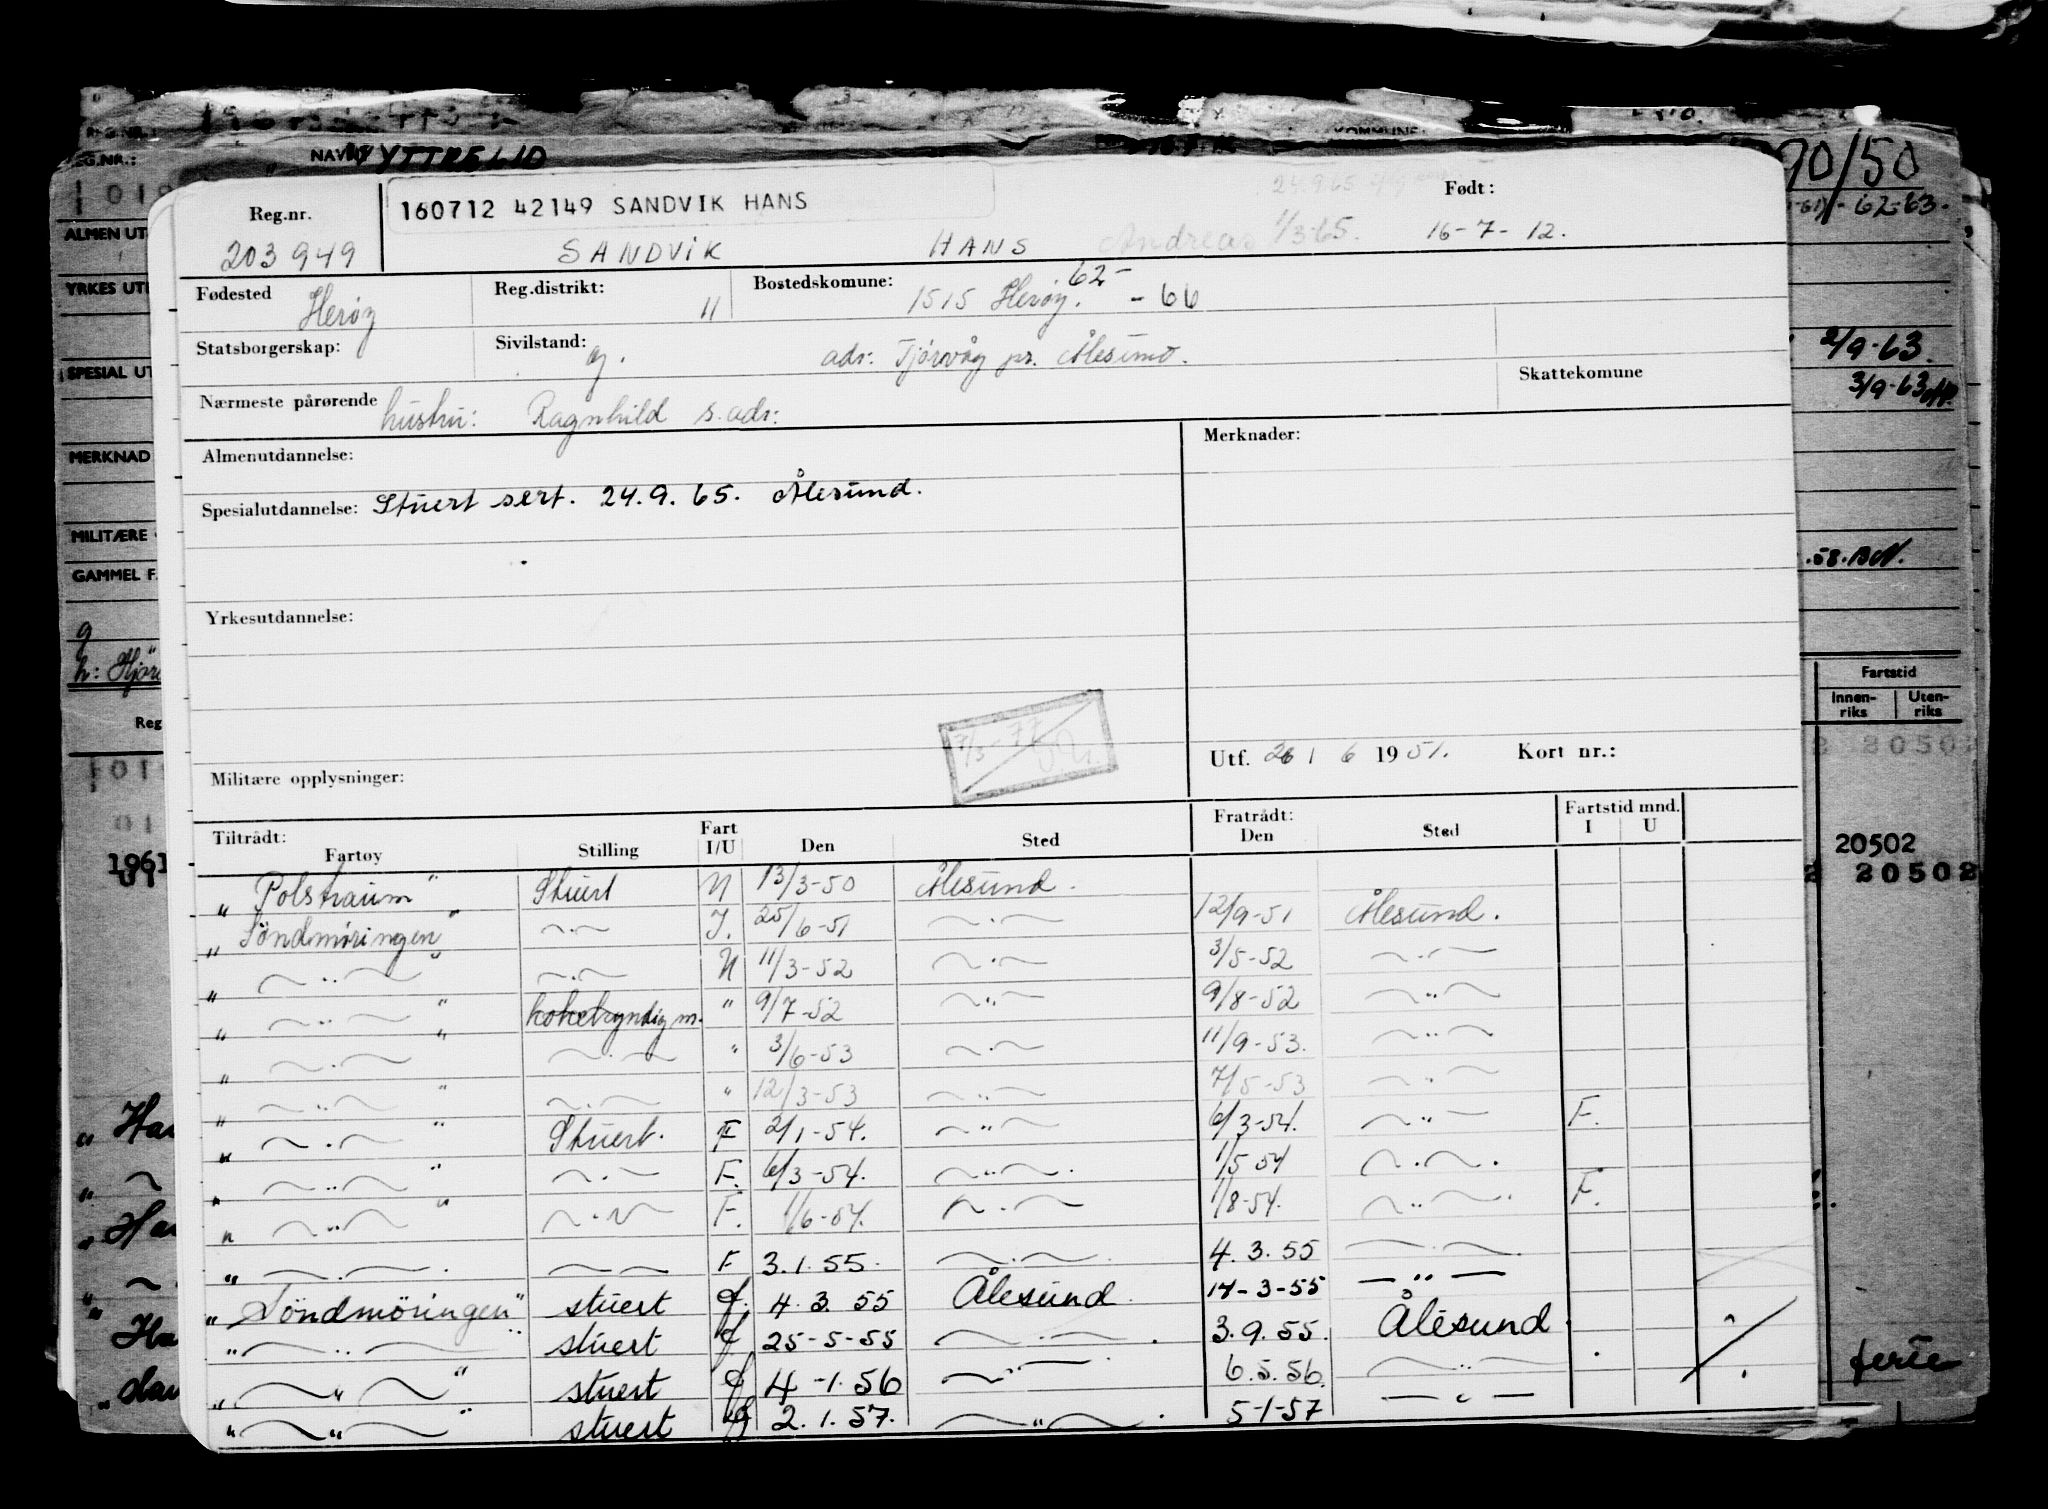 NAVN YTTRELID
REG.NR.: 90/50
Reg.nr. 160712 42149 SANDVIK HANS Født:
203949 SANDVIK HANS Andreas 1/3-65. 16-7-12.
Fødested Herøy Reg.distrikt: 11 Bostedskomune: 1515 Herøy. 62- -66
Statsborgerskap: Sivilstand: g. adr: Tjørvåg pr. Ålesund.
Skattekomune
Nærmeste pårørende hustru: Ragnhild s. adr:
Almenutdannelse: Merknader:
Spesialutdannelse: Stuert sert. 24.9.65. Ålesund.
Yrkesutdannelse:
Militære opplysninger: 7/3-77 Utf. 26 / 6 1951. Kort nr.:
Tiltrådt: Fart Fratrådt: Fartstid mnd.
Fartøy Stilling I/U Den Sted Den Sted I U
"Polstraum" Stuert U 13/3-50 Ålesund.
"Söndmöringen" -.- I. 25/6-51 -.- 12/9-51 Ålesund.
" -..- " -.- U 11/3-52 -.- 3/5-52 -.-
" -..- " kokekyndig m. " 9/7-52 -..- 9/8-52 -..-
" -.- " -.- " 3/6-53 -.- 11/9-53. -..-
" -..- " -.- " 12/3-53 -..- 7/5-53 -..-
" -.- " Stuert. F 2/1-54. -..- 6/3-54. -..- F.
" -..- " -.- F. 6/3-54. -..- 1/5 54 -.-.
" -..- " -.- F. 1/6-54. -.- 1/8-54. -..- F.
" -.- -- F 3.1.55. -.- 4.3.55 -.-
"Söndmöringen" stuert f. 4.3.55 Ålesund 14-3-55 -..-
" -..- " stuert f 25-5-55 -.- 3.9.55. Ålesund
" -"- " stuert f 4-1.56 -..- 6.5.56. -..-
" -"- " stuert f 2.1.57. -"- 5-1-57 -"-
ALMEN UT
YRKES UT
SPECIAL UT
MERKNAD
MILITÆRE
GAMMEL F.
g
h:
Reg
1961
62-63.
2/9-63.
3/9-63
.58.
Fartstid
Innen-
riks
Uten-
riks
20502
20502
20502
ferie